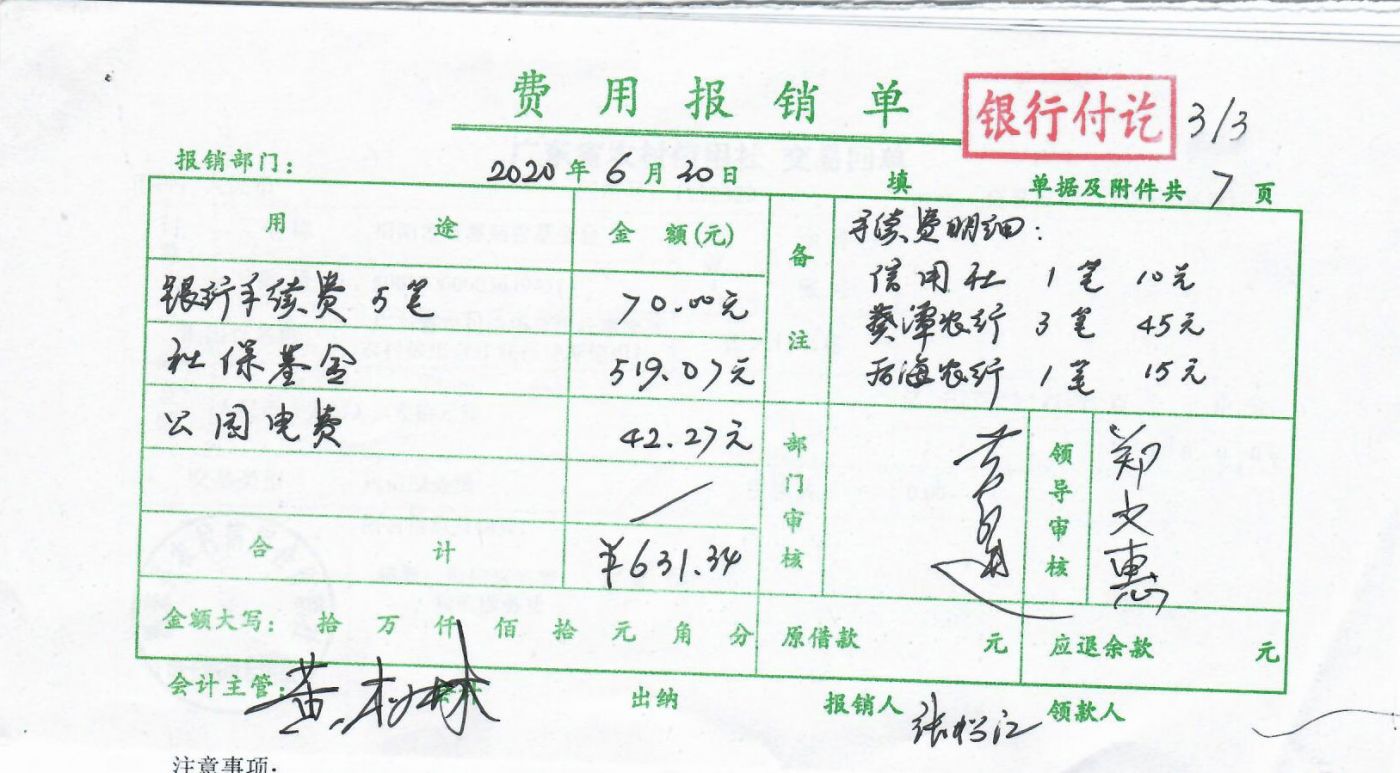 费用报销单 银行付讫 3/3
报销部门: 2020年6月30日 填 单据及附件共7页
用途 金额(元) 备注 手续费明细:
信用社 1笔 10元
银行手续费5笔 70.00元 葵潭农行 3笔 45元
社保基金 519.07元 后海农行 1笔 15元
公园电费 42.27元 部门审核 领导审核 郑文惠
合计 ¥631.34
金额大写: 拾 万 仟 佰 拾 元 角 分 原借款 元 应退余款 元
会计主管: 黄 林 出纳 报销人 张松江 领款人
注意事项: